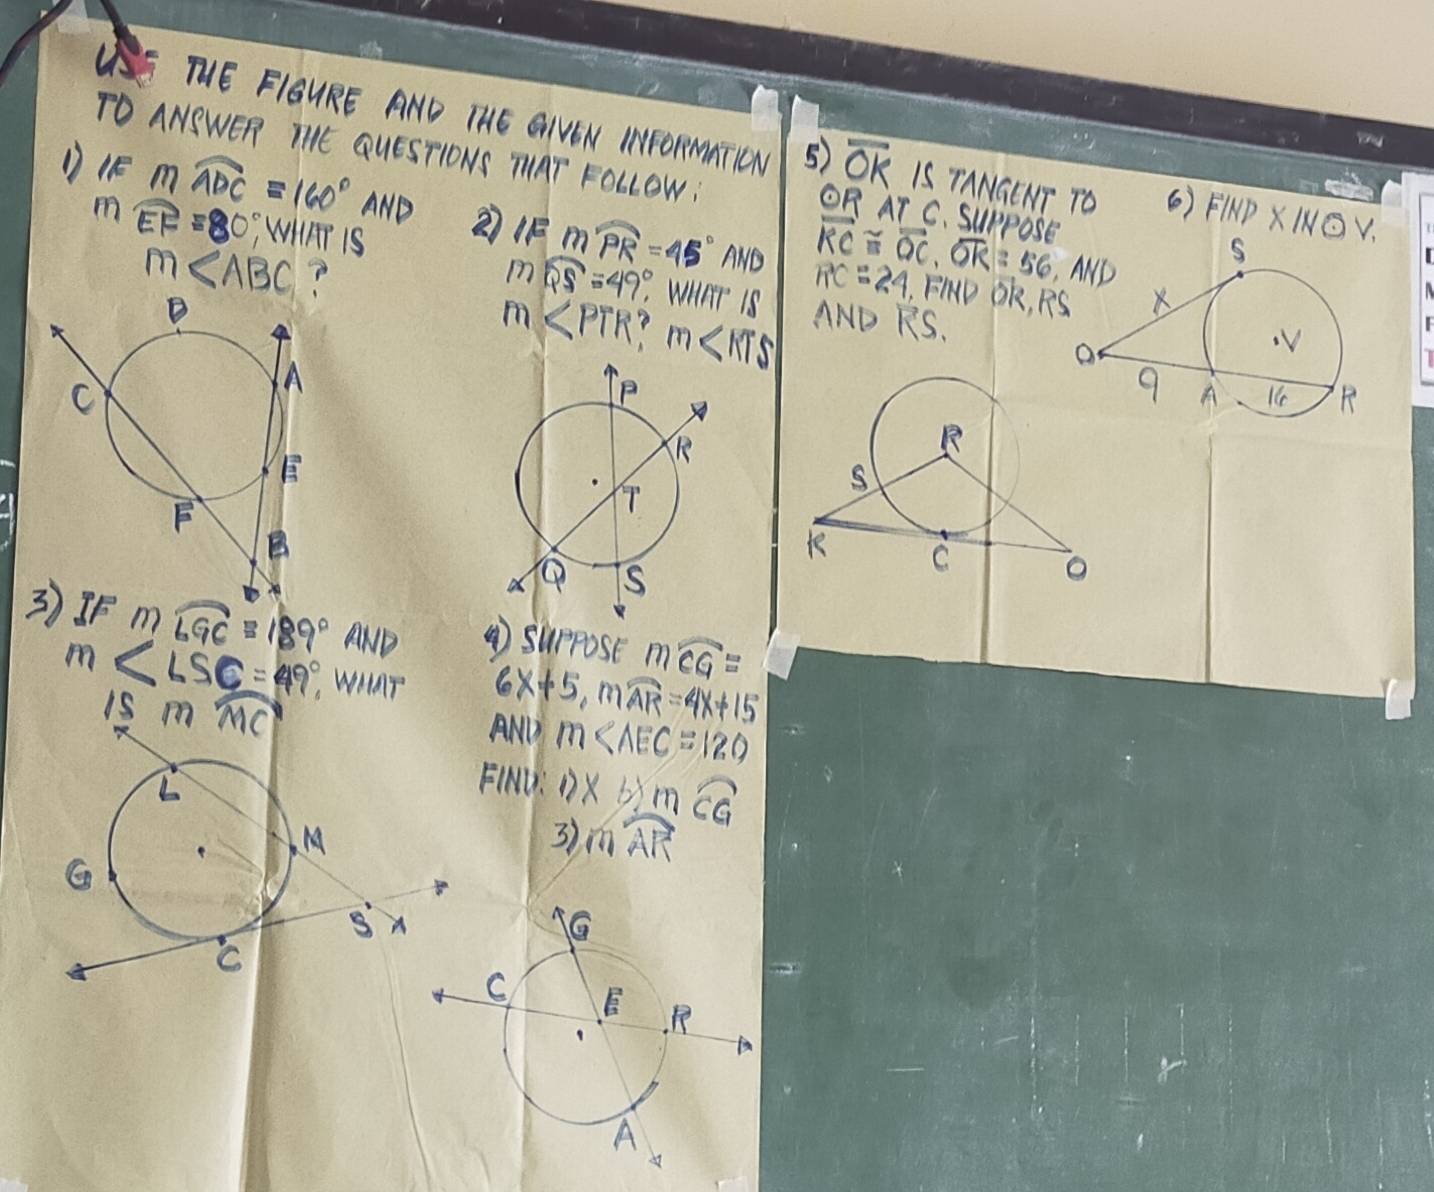 USE THE FIGURE AND THE GIVEN INFORMATION
TO ANSWER THE QUESTIONS THAT FOLLOW:
1) IF m ADC = 160° AND
m EF = 80°, WHAT IS
m <ABC ?
D
C
A
E
F
B
2) IF m PR = 45° AND
m QS = 49°, WHAT IS
m <PTR? m <RTS
P
R
T
Q
S
3) IF m LGC = 189° AND
m <LSC = 49°, WHAT
IS m MC
L
M
G
S
C
4) SUPPOSE m CG =
6X+5, m AR = 4X+15
AND m <AEC = 120
FIND: 1) X b) m CG
3) m AR
G
C
E
R
A
5) OK IS TANGENT TO
⊙R AT C. SUPPOSE
KC ≅ OC, OK = 56, AND
RC = 24, FIND OR, RS
AND RS.
R
S
K
C
O
6) FIND X IN ⊙ V.
S
X
V
O
9
A
16
R